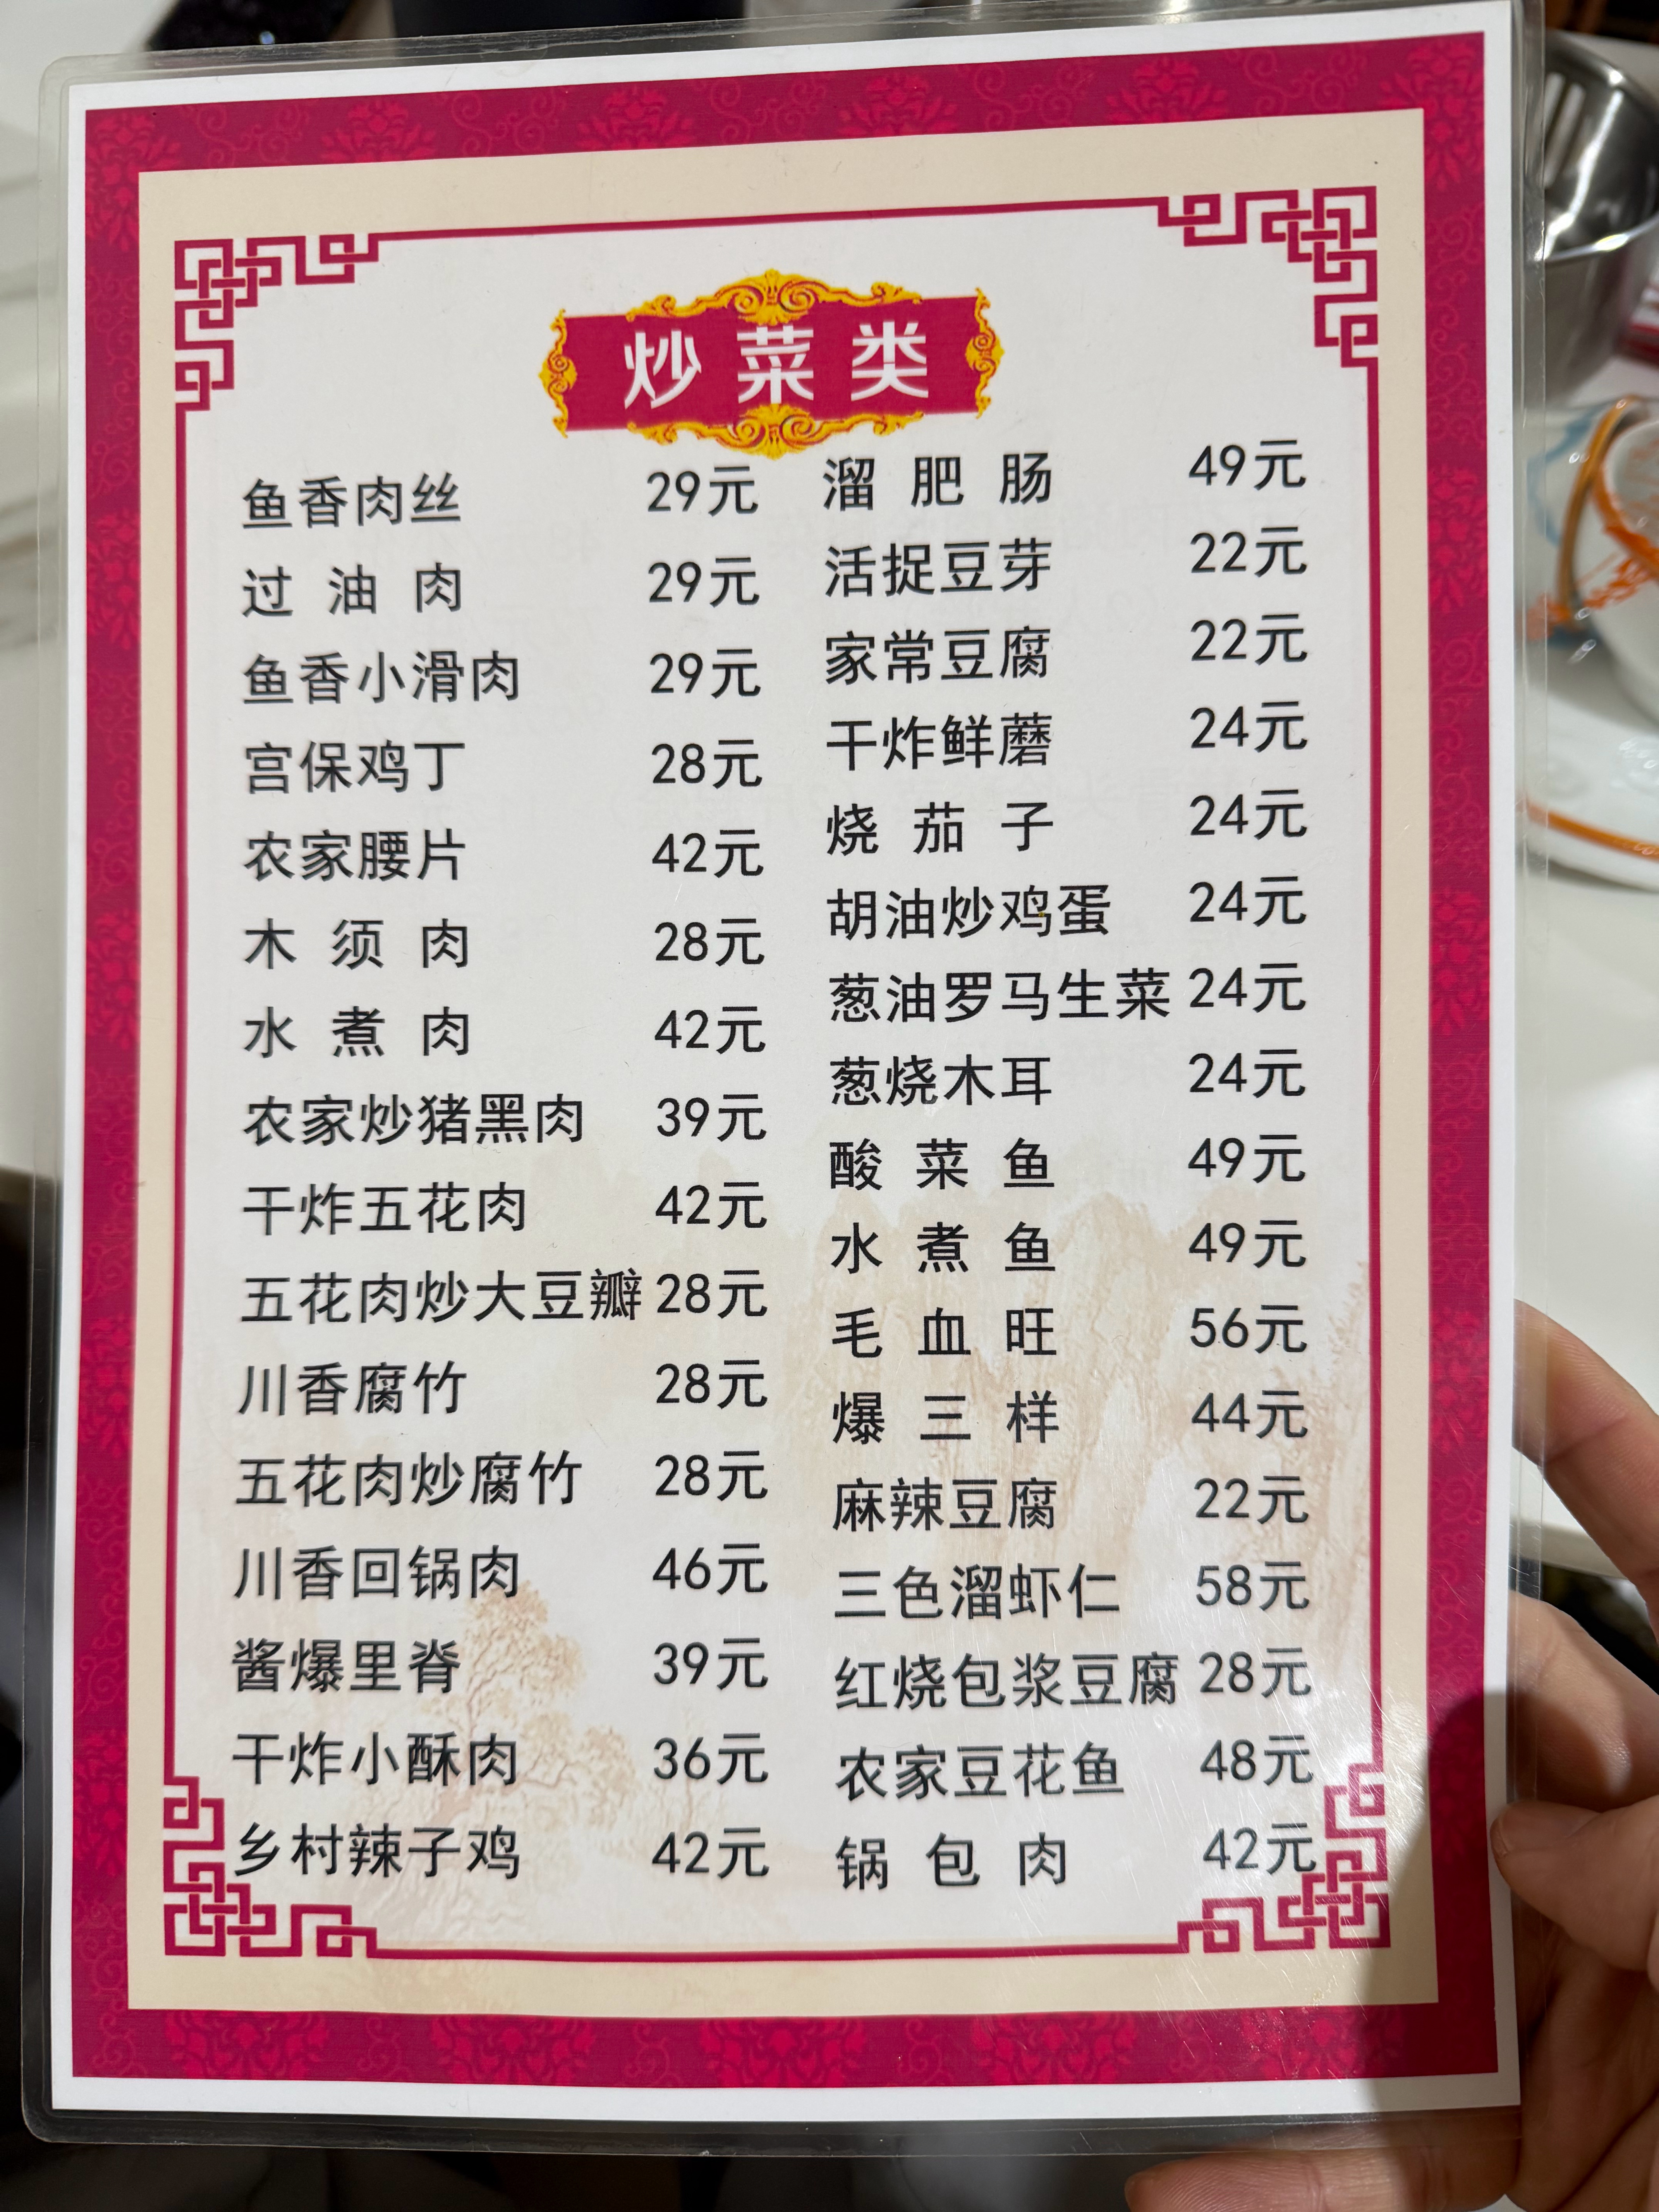 炒菜类
鱼香肉丝 29元
过油肉 29元
鱼香小滑肉 29元
宫保鸡丁 28元
农家腰片 42元
木须肉 28元
水煮肉 42元
农家炒猪黑肉 39元
干炸五花肉 42元
五花肉炒大豆瓣 28元
川香腐竹 28元
五花肉炒腐竹 28元
川香回锅肉 46元
酱爆里脊 39元
干炸小酥肉 36元
乡村辣子鸡 42元
溜肥肠 49元
活捉豆芽 22元
家常豆腐 22元
干炸鲜蘑 24元
烧茄子 24元
胡油炒鸡蛋 24元
葱油罗马生菜 24元
葱烧木耳 24元
酸菜鱼 49元
水煮鱼 49元
毛血旺 56元
爆三样 44元
麻辣豆腐 22元
三色溜虾仁 58元
红烧包浆豆腐 28元
农家豆花鱼 48元
锅包肉 42元